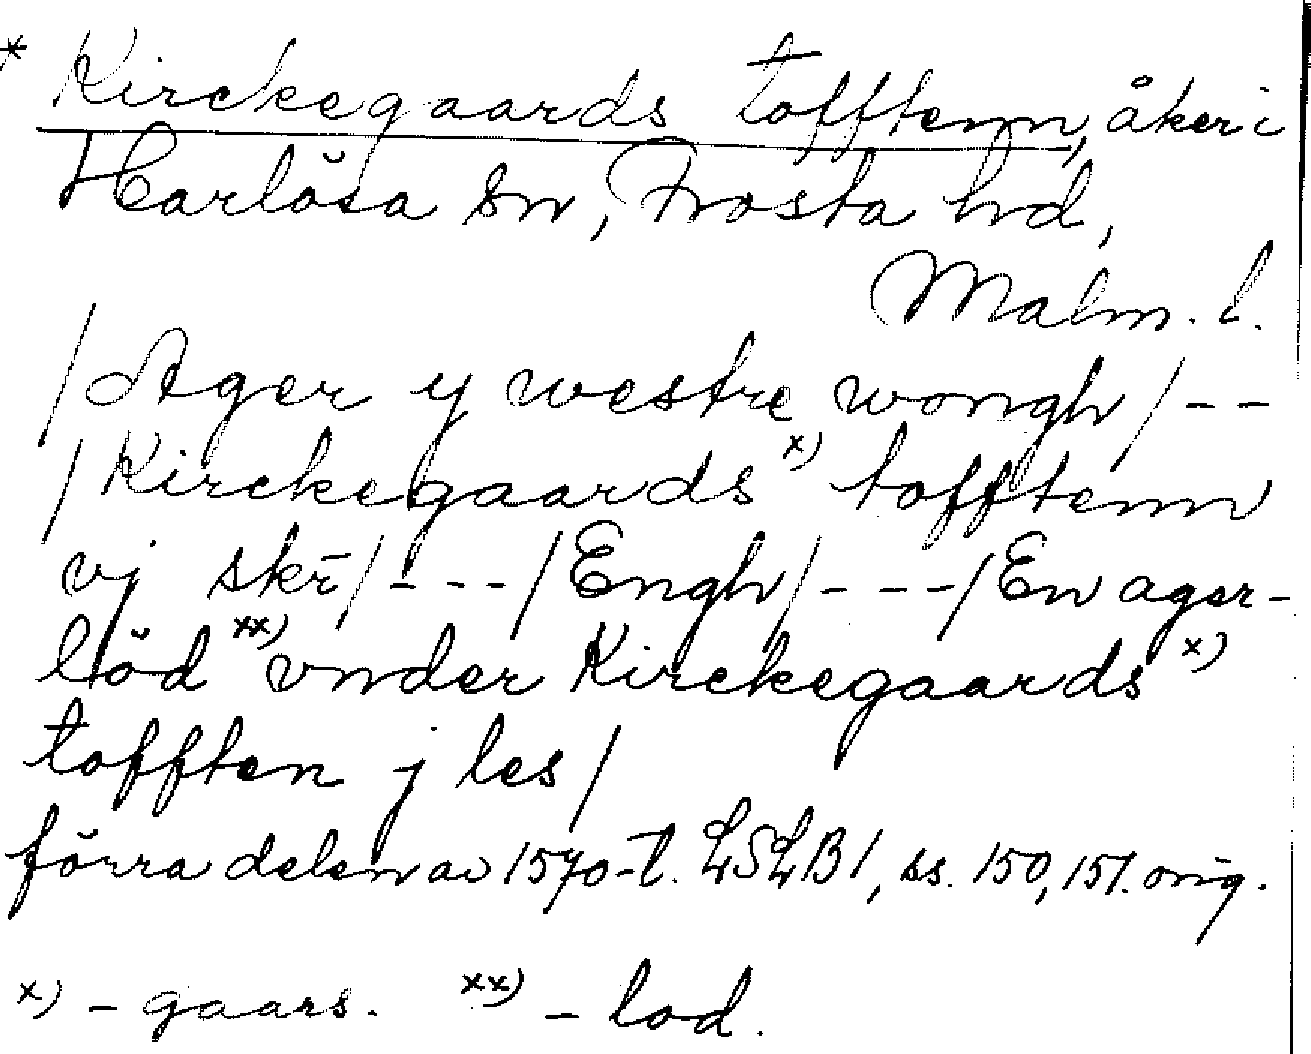 * Kirckegaards tofftenn, åker i
Harlösa sn, Frosta hd,
Malm. l.
/Ager y westre wongh/--
/Kirckegaards x) tofftenn
vj skē/---/Engh/---/En ager-
löd xx) vnder Kirckegaards x)
tofften j les/
förra delen av 1570-t. LSLB1, ss. 150, 151. orig.
x) -gaars. xx) -lod.